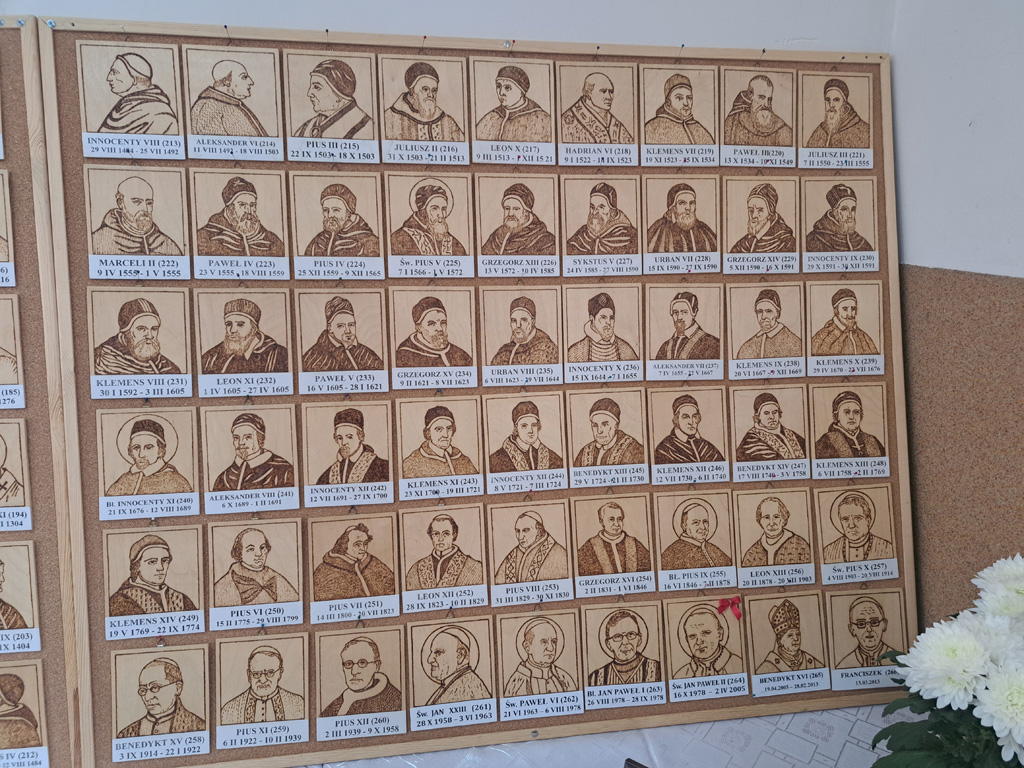 INNOCENTY VIII (213)
29 VIII 1484 - 25 VII 1492
ALEKSANDER VI (214)
11 VIII 1492 - 18 VIII 1503
PIUS III (215)
22 IX 1503 - 18 X 1503
JULIUSZ II (216)
31 X 1503 - 21 II 1513
LEON X (217)
9 III 1513 - 1 XII 1521
HADRIAN VI (218)
9 I 1522 - IX 1523
KLEMENS VII (219)
19 XI 1523 - IX 1534
PAWEŁ III (220)
13 X 1534 - 10 XI 1549
JULIUSZ III (221)
7 II 1550 - 23 III 1555
MARCELI II (222)
9 IV 1555 - 1 V 1555
PAWEŁ IV (223)
23 V 1555 - 18 VIII 1559
PIUS IV (224)
25 XII 1559 - 9 XII 1565
Św. PIUS V (225)
7 I 1566 - 1 V 1572
GRZEGORZ XIII (226)
13 V 1572 - 10 IV 1585
SYKSTUS V (227)
24 IV 1585 - 27 VIII 1590
URBAN VII (228)
15 IX 1590 - 27 IX 1590
GRZEGORZ XIV (229)
5 XII 1590 - 16 X 1591
INNOCENTY IX (230)
29 X 1591 - 30 XII 1591
KLEMENS VIII (231)
30 I 1592 - 3 III 1605
LEON XI (232)
1 IV 1605 - 27 IV 1605
PAWEŁ V (233)
16 V 1605 - 28 I 1621
GRZEGORZ XV (234)
9 II 1621 - 8 VII 1623
URBAN VIII (235)
6 VIII 1623 - 29 VII 1644
INNOCENTY X (236)
15 IX 1644 - 7 I 1655
ALEKSANDER VII (237)
7 IV 1655 - 22 V 1667
KLEMENS IX (238)
20 VI 1667 - 9 XII 1669
KLEMENS X (239)
29 IV 1670 - 22 VII 1676
(185)
1276
Bł. INNOCENTY XI (240)
21 IX 1676 - 12 VIII 1689
ALEKSANDER VIII (241)
6 X 1689 - 1 II 1691
INNOCENTY XII (242)
12 VII 1691 - 27 IX 1700
KLEMENS XI (243)
23 XI 1700 - 19 III 1721
INNOCENTY XIII (244)
8 V 1721 - 7 III 1724
BENEDYKT XIII (245)
29 V 1724 - 21 II 1730
KLEMENS XII (246)
12 VII 1730 - 6 II 1740
BENEDYKT XIV (247)
17 VIII 1740 - 3 V 1758
KLEMENS XIII (248)
6 VII 1758 - 2 II 1769
XI (194)
I 1304
KLEMENS XIV (249)
19 V 1769 - 22 IX 1774
PIUS VI (250)
15 II 1775 - 29 VIII 1799
PIUS VII (251)
14 III 1800 - 20 VII 1823
LEON XII (252)
28 IX 1823 - 10 II 1829
PIUS VIII (253)
31 III 1829 - 30 XI 1830
GRZEGORZ XVI (254)
2 II 1831 - 1 VI 1846
BŁ. PIUS IX (255)
16 VI 1846 - 7 II 1878
LEON XIII (256)
20 II 1878 - 20 VII 1903
Św. PIUS X (257)
4 VIII 1903 - 20 VIII 1914
IX (203)
IX 1404
BENEDYKT XV (258)
3 IX 1914 - 22 I 1922
PIUS XI (259)
6 II 1922 - 10 II 1939
PIUS XII (260)
2 III 1939 - 9 X 1958
Św. JAN XXIII (261)
28 X 1958 - 3 VI 1963
Św. PAWEŁ VI (262)
21 VI 1963 - 6 VIII 1978
Bł. JAN PAWEŁ I (263)
26 VIII 1978 - 28 IX 1978
Św. JAN PAWEŁ II (264)
16 X 1978 - 2 IV 2005
BENEDYKT XVI (265)
19.04.2005 - 28.02.2013
FRANCISZEK (266
13.03.2013
S IV (212)
VIII 1484